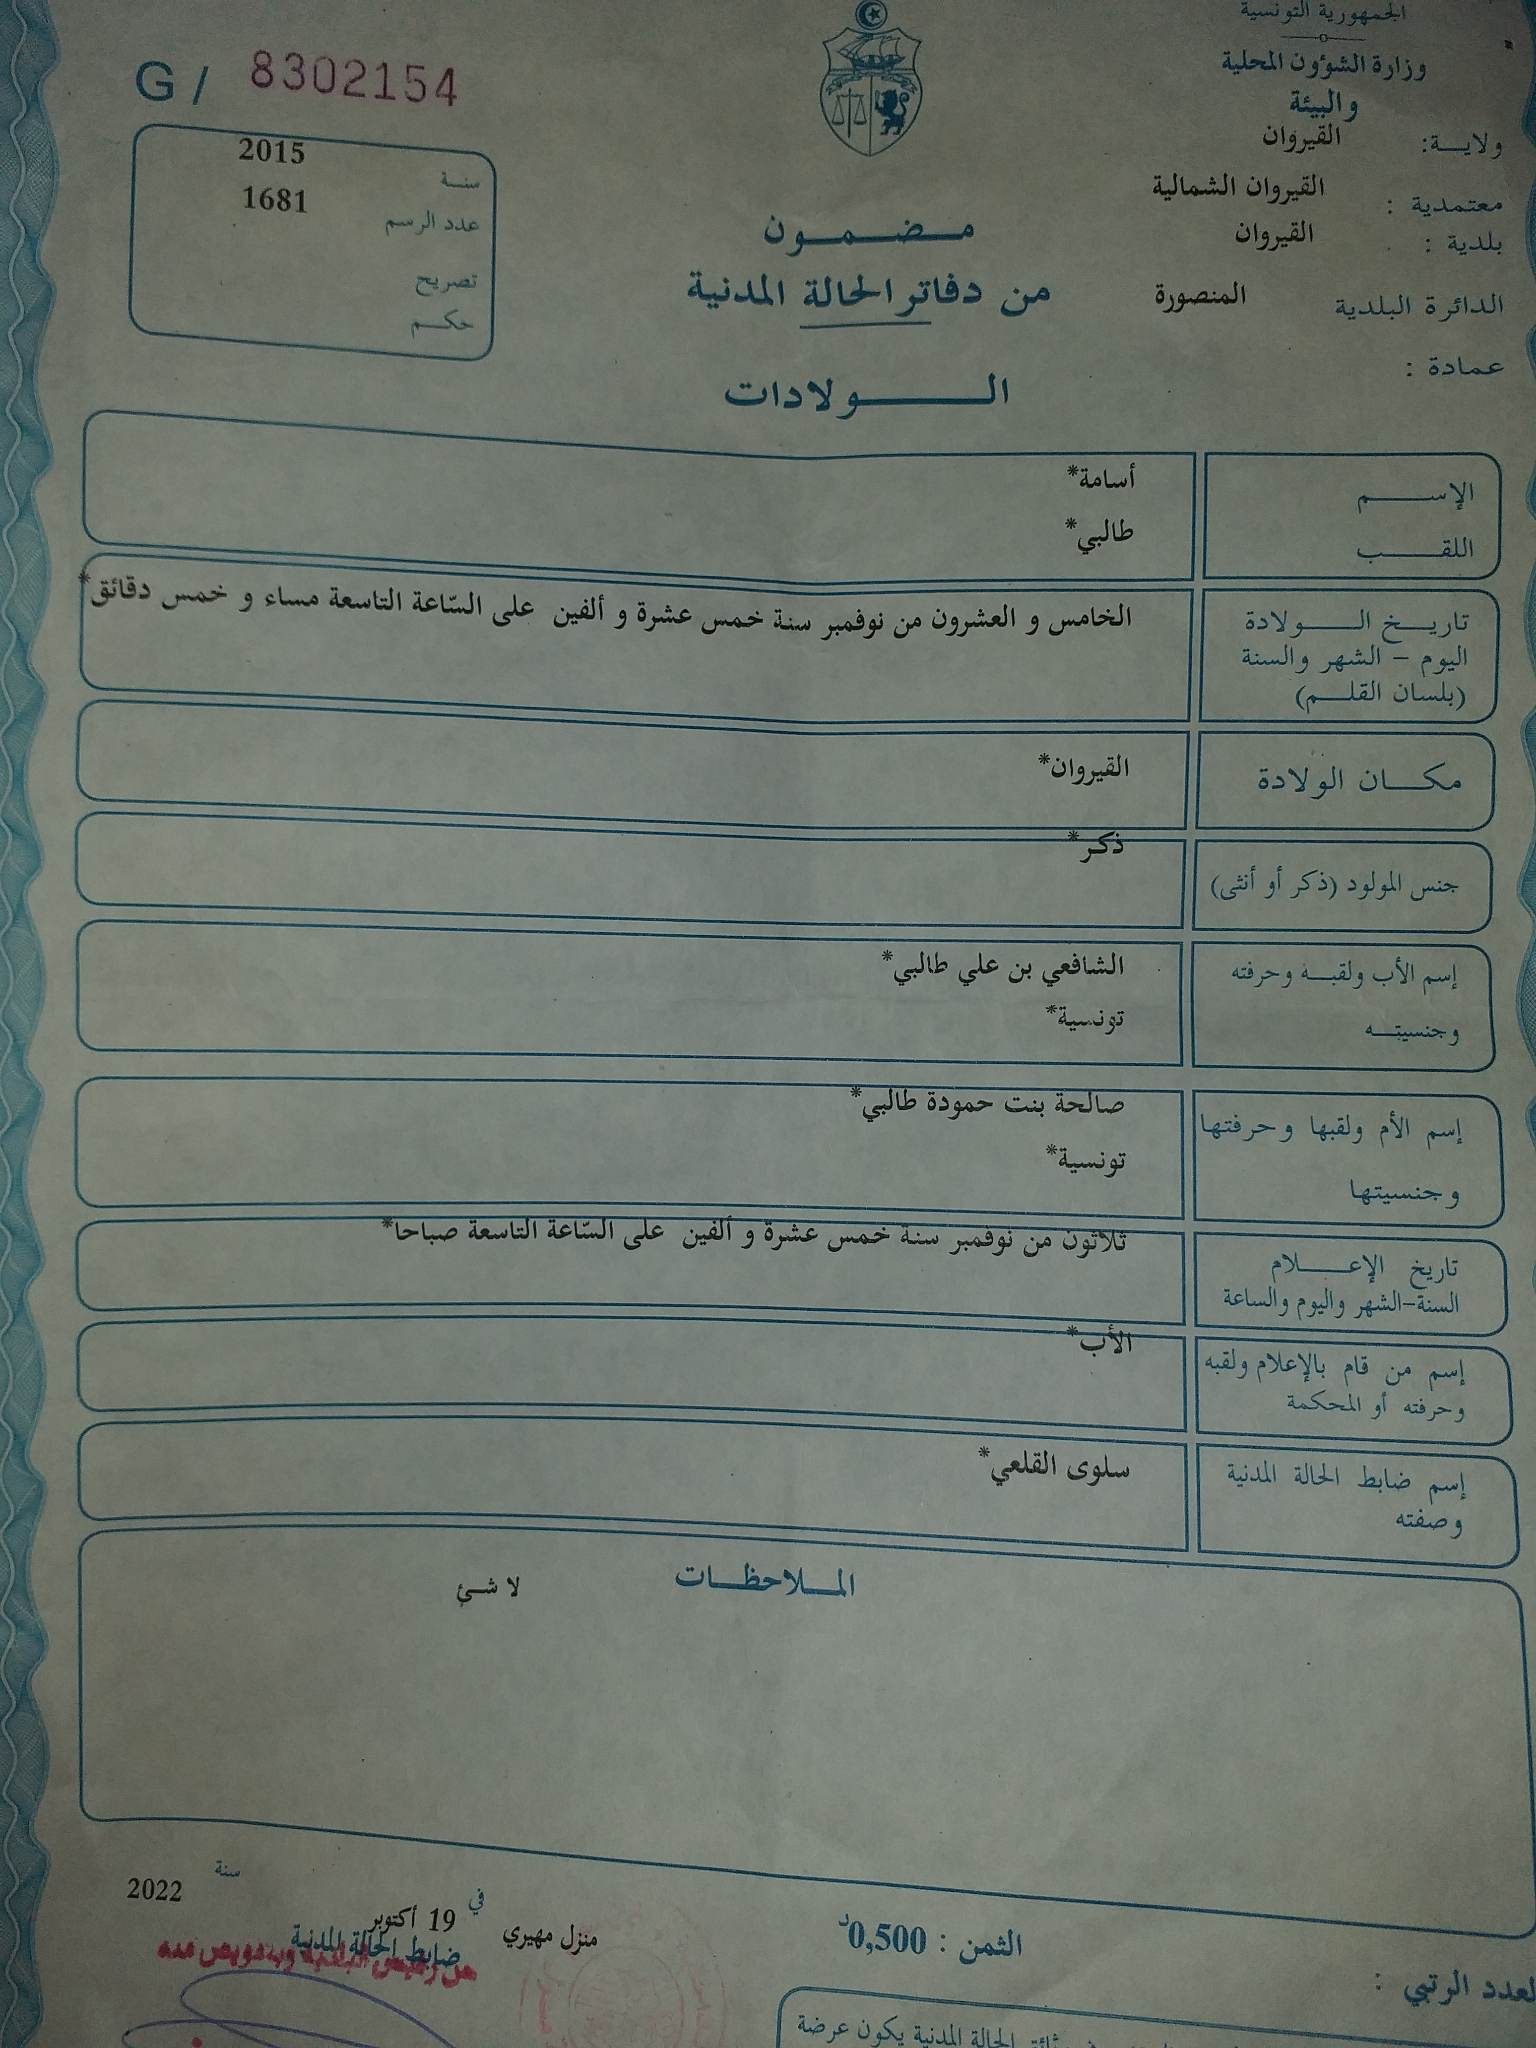 الجمهورية التونسية
وزارة الشؤون المحلية
والبيئة
ولاية: القيروان
معتمدية : القيروان الشمالية
بلدية : القيروان
الدائرة البلدية المنصورة
عمادة :
G / 8302154
سنة 2015
عدد الرسم 1681
تصريح
حكم
مضمون
من دفاتر الحالة المدنية
الولادات
الإسم أسامة*
اللقب طالبي*
تاريخ الولادة
اليوم - الشهر والسنة
(بلسان القلم)
الخامس و العشرون من نوفمبر سنة خمس عشرة و ألفين على السّاعة التاسعة مساء و خمس دقائق*
مكان الولادة القيروان*
جنس المولود (ذكر أو أنثى) ذكر*
إسم الأب ولقبه وحرفته الشافعي بن علي طالبي*
وجنسيته تونسية*
إسم الأم ولقبها وحرفتها صالحة بنت حمودة طالبي*
وجنسيتها تونسية*
تاريخ الإعلام
السنة-الشهر واليوم والساعة
ثلاثون من نوفمبر سنة خمس عشرة و ألفين على السّاعة التاسعة صباحا*
إسم من قام بالإعلام ولقبه
وحرفته أو المحكمة
الأب*
إسم ضابط الحالة المدنية
وصفته
سلوى القلعي*
الملاحظات
لا شئ
منزل مهيري في 19 أكتوبر سنة 2022
ضابط الحالة المدنية
عن رئيس البلدية وبتفويض منه
الثمن : 0,500د
العدد الرتبي :
الحالة المدنية يكون عرضة